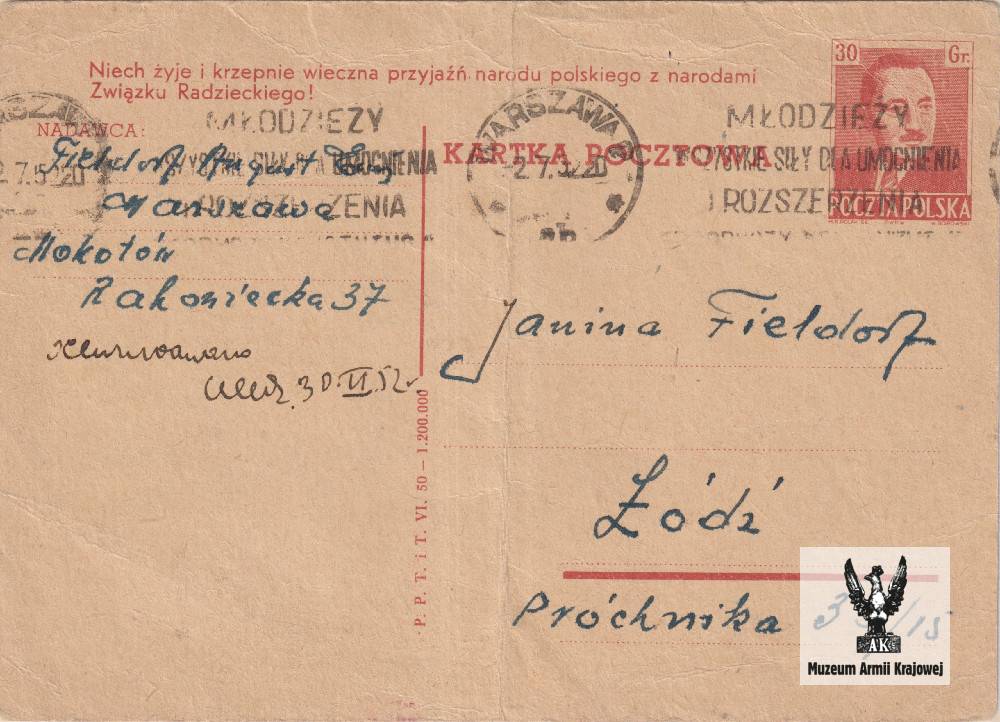 30 Gr.
Niech żyje i krzepnie wieczna przyjaźń narodu polskiego z narodami
Związku Radzieckiego!
NADAWCA:
KARTKA POCZTOWA
POCZTA POLSKA
WARSZAWA
2.7.52.20
MŁODZIEŻY
SIŁY DLA UMOCNIENIA
I ROZSZERZENIA
Fieldorf August Em
Warszawa
Mokotów
Rakowiecka 37
30.VI.52 r.
Janina Fieldorf
Łódź
Próchnika 3 /15
P. P. T. i T. VI. 50 — 1.200.000
AK
Muzeum Armii Krajowej